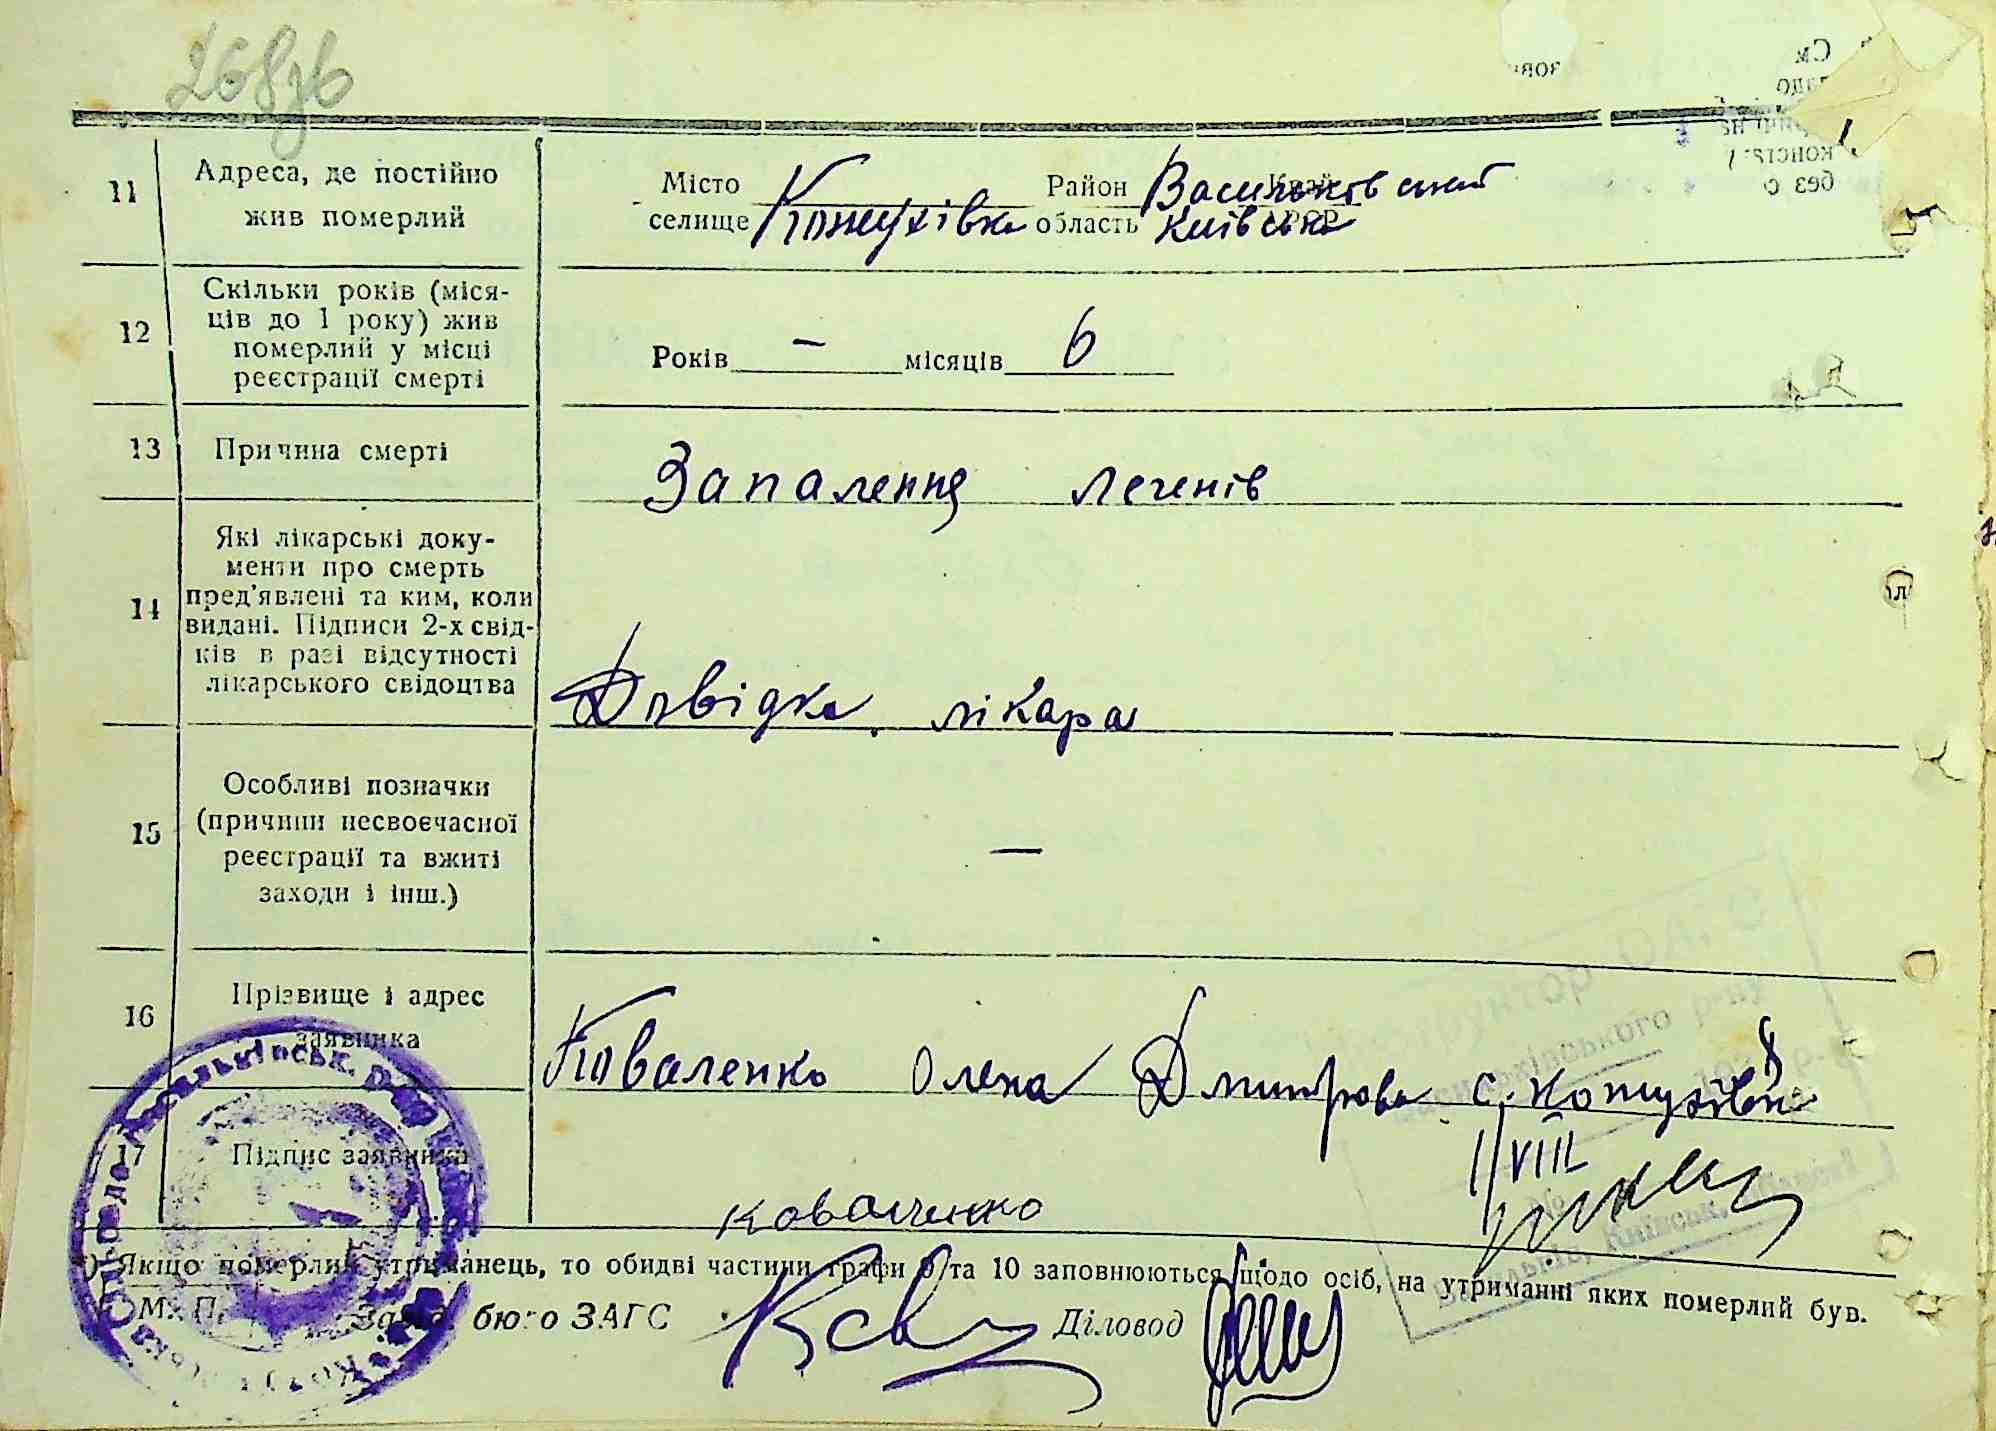 268зб
11
Адреса, де постійно
жив померлий
Місто
селище Кожухівка
Район Васильковский Край
область Київська РСР
12
Скільки років (міся-
ців до 1 року) жив
померлий у місці
реєстрації смерті
Років — місяців 6
13
Причина смерті
Запалення легенів
14
Які лікарські доку-
менти про смерть
пред'явлені та ким, коли
видані. Підписи 2-х свід-
ків в разі відсутності
лікарського свідоцтва
Довідка лікара
15
Особливі позначки
(причини несвоєчасної
реєстрації та вжиті
заходи і інш.)
—
16
Прізвище і адрес
заявника
Коваленко Олена Дмитрова с. Кожухівка
17
Підпис заявника
коваленко
1/VIII
Якщо померлий утриманець, то обидві частини графи 9 та 10 заповнюються щодо осіб, на утриманні яких померлий був.
М. П. Завід. бюро ЗАГС
Діловод